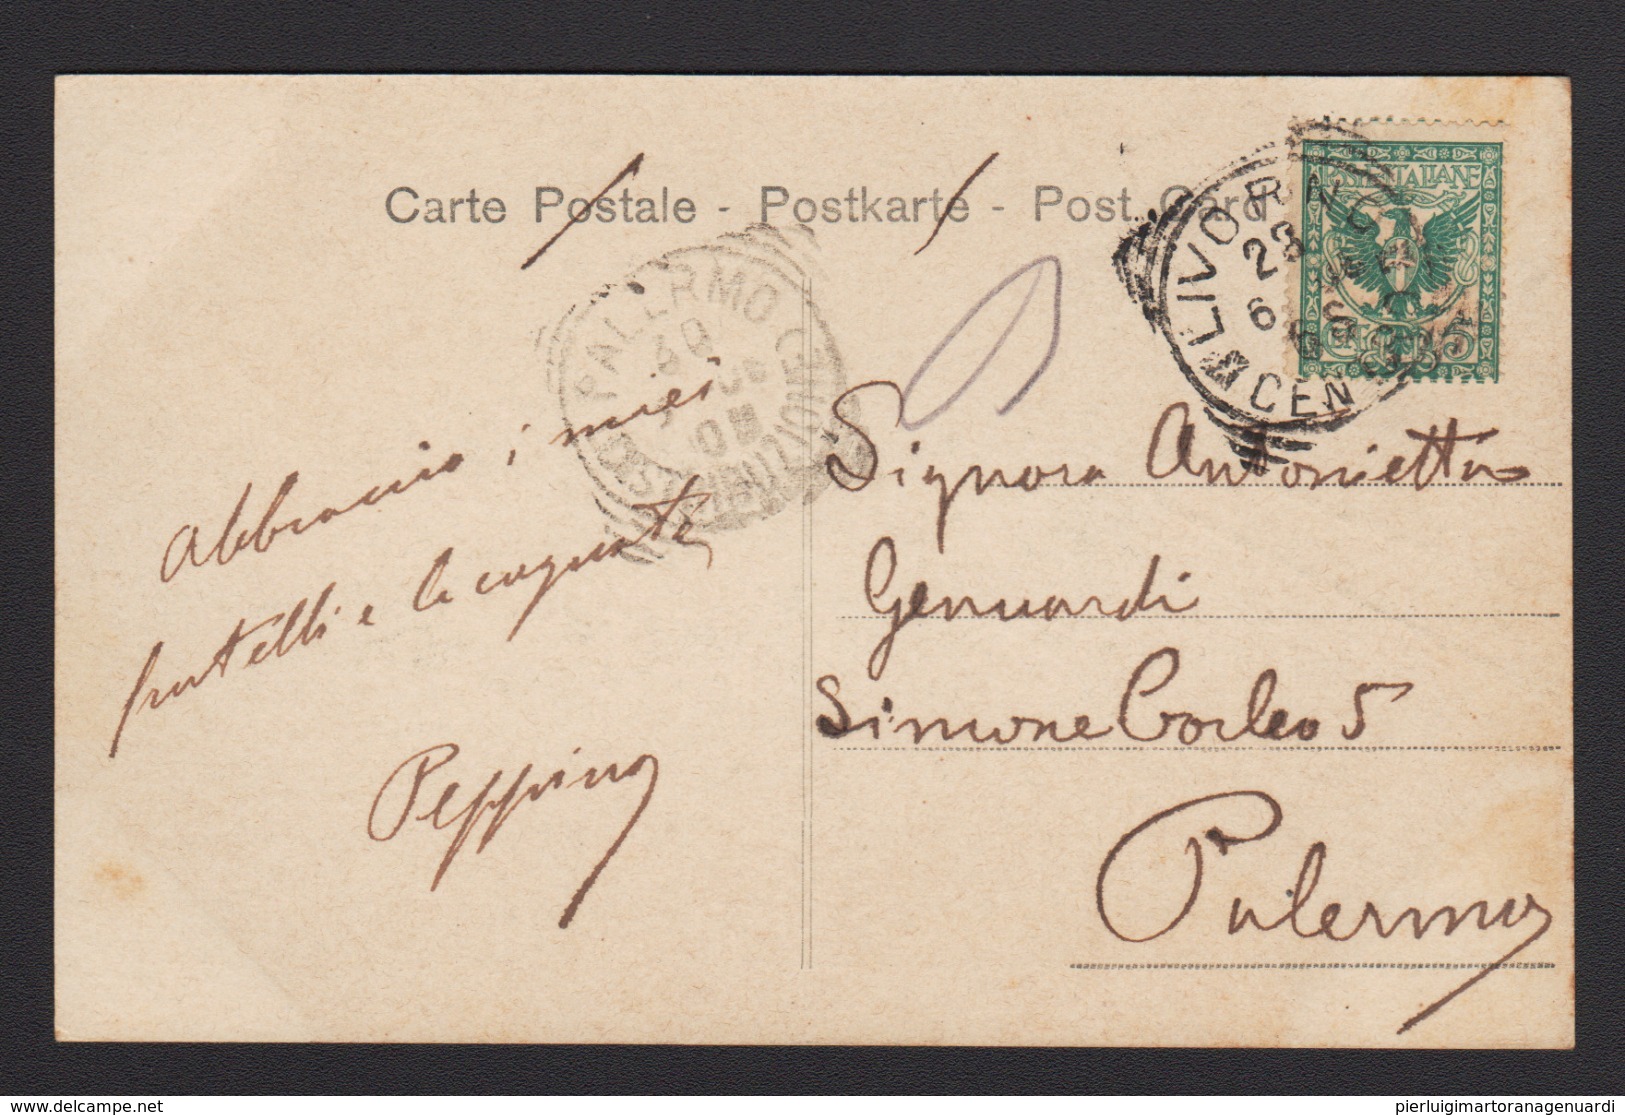 Carte Postale - Postkarte - Post. Card
POSTE ITALIANE
LIVORNO
CEN
PALERMO
Abbraccio i miei
fratelli e le cognate
Peppino
Signora Antonietta
Genuardi
Simone Corleo 5
Palermo
www.delcampe.net
pierluigimartoranagenuardi